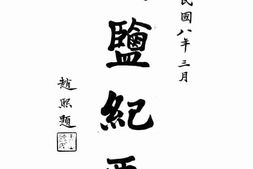 民國八年三月
鹽紀要
趙熙題